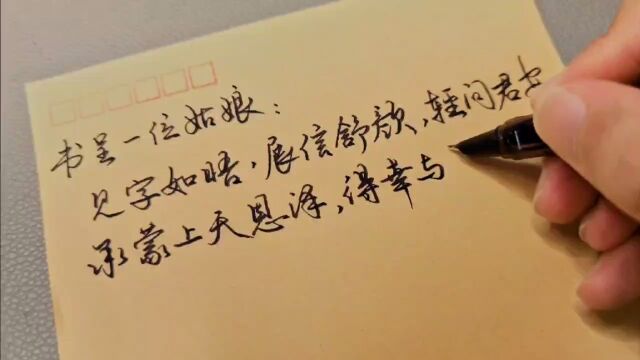 书呈一位姑娘：
见字如晤，展信舒颜，轻问君安
承蒙上天恩泽，得幸与